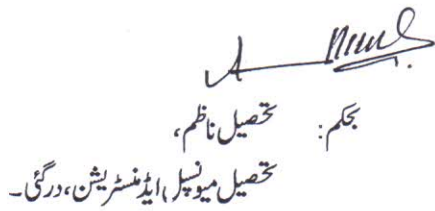 بحکم: تحصیل ناظم،
تحصیل میونسپل ایڈمنسٹریشن، درگئی۔